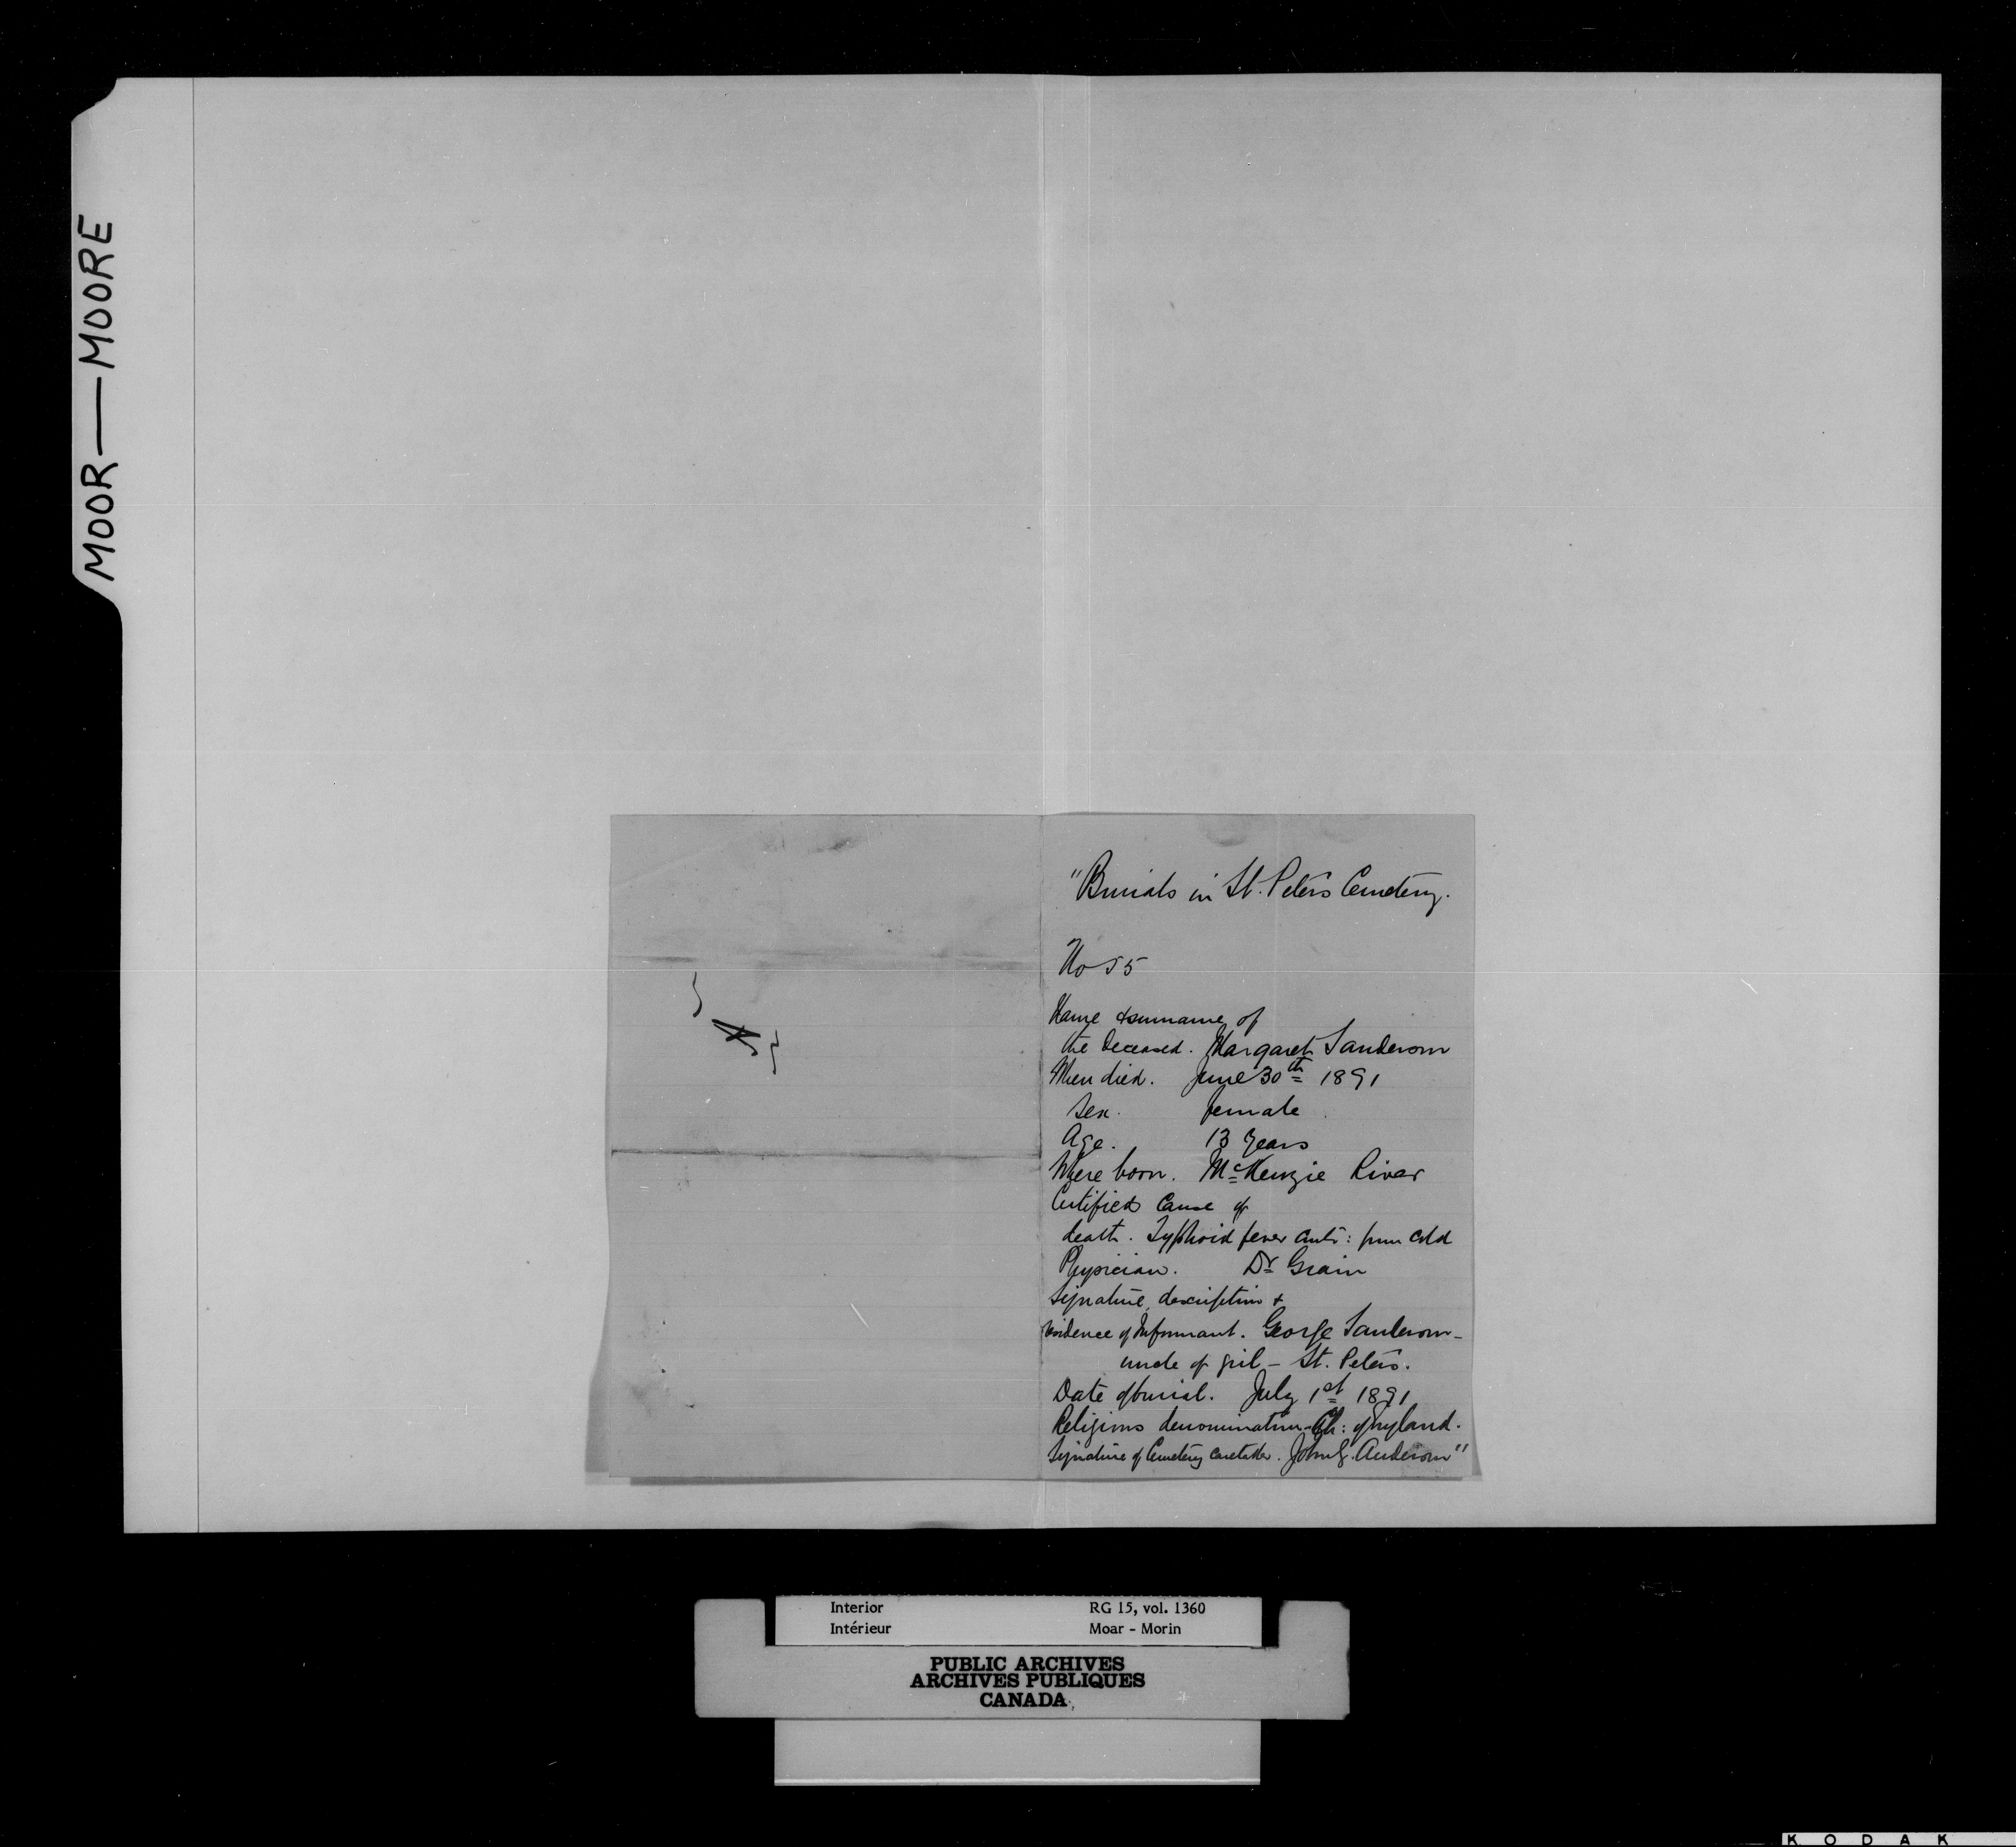 MOOR—MOORE
"Burials in St. Peters Cemetery.
No 55
Name & surname of
the Deceased. Margaret Sanderson
When died. June 30th 1891
Sex. female
Age. 13 years
Where born. McKenzie River
Certified Cause of
death. Typhoid fever from cold
Physician. Dr Grain
Signature, description &
residence of Informant. George Sanderson —
uncle of girl — St. Peters.
Date of burial. July 1st 1891
Religious denomination — Ch: of England.
Signature of Cemetery Caretaker. John G. Anderson"
Interior RG 15, vol. 1360
Intérieur Moar - Morin
PUBLIC ARCHIVES
ARCHIVES PUBLIQUES
CANADA
KODAK